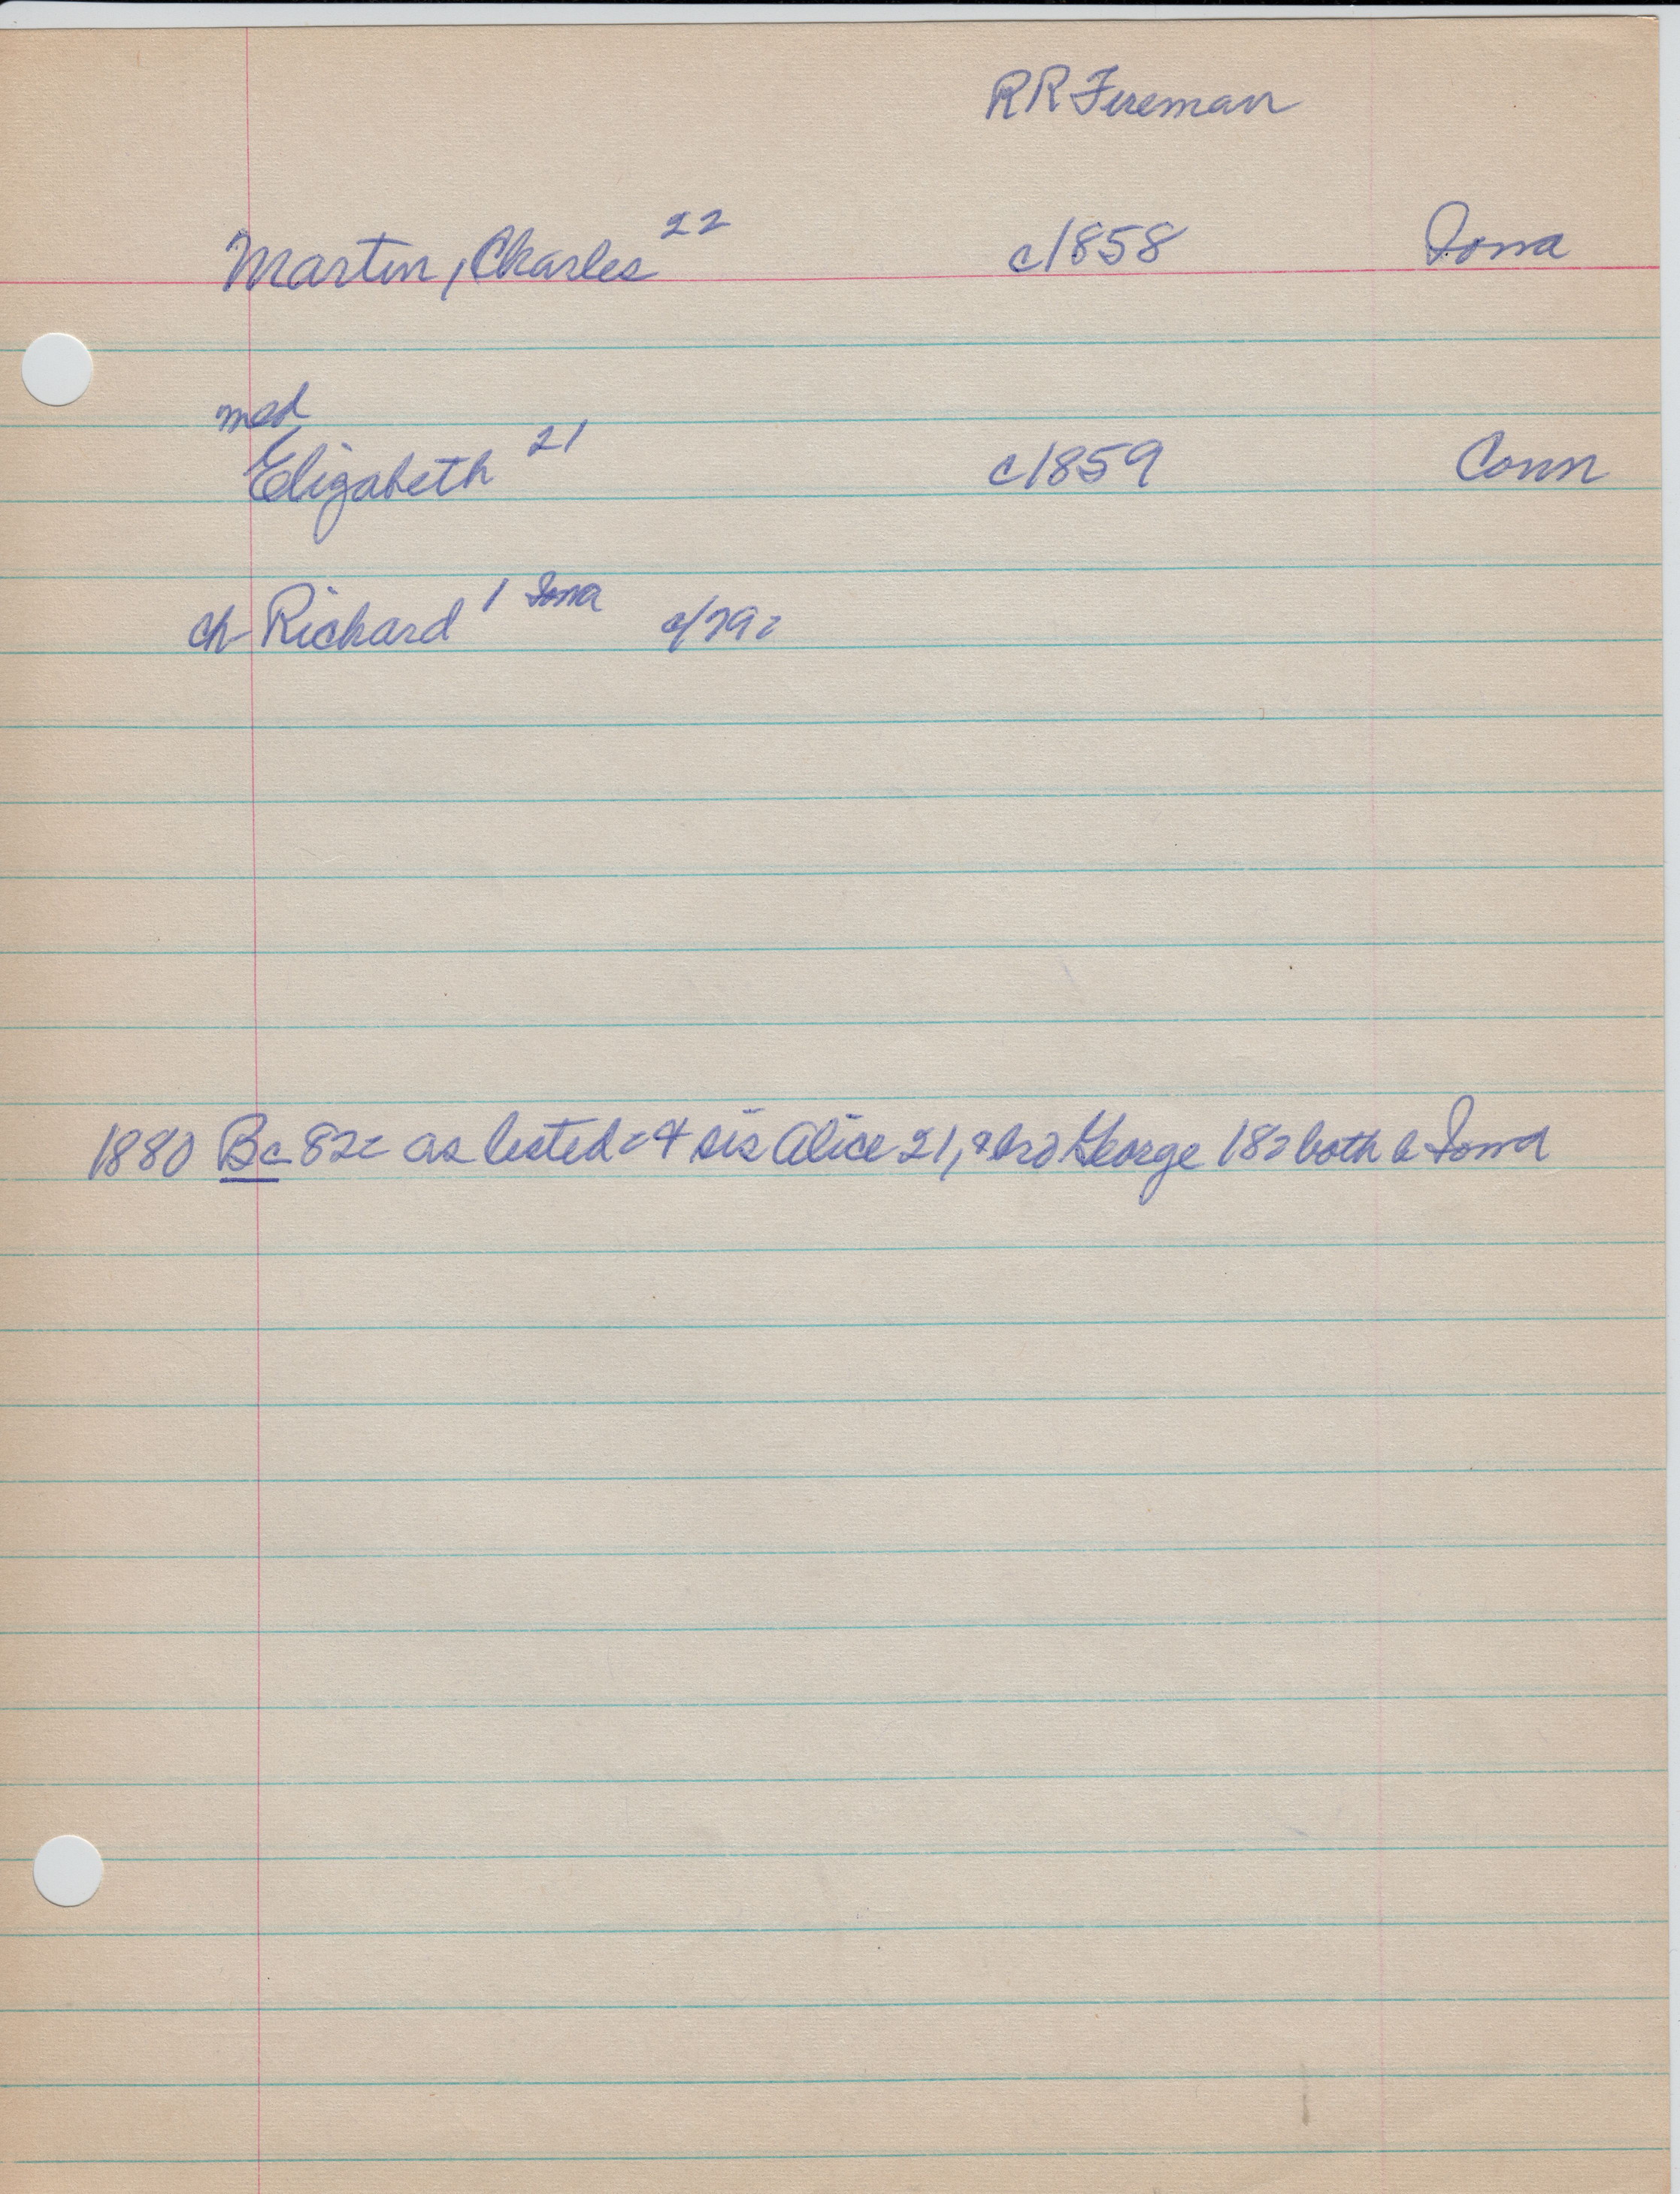 RR Fireman
Martin, Charles 22 c1858 Iowa
med
Elizabeth 21 c1859 Conn
ch Richard 1 Iowa c/79?
1880 Bc 82c as listed + sis Alice 21, & bro George 18 both b Iowa